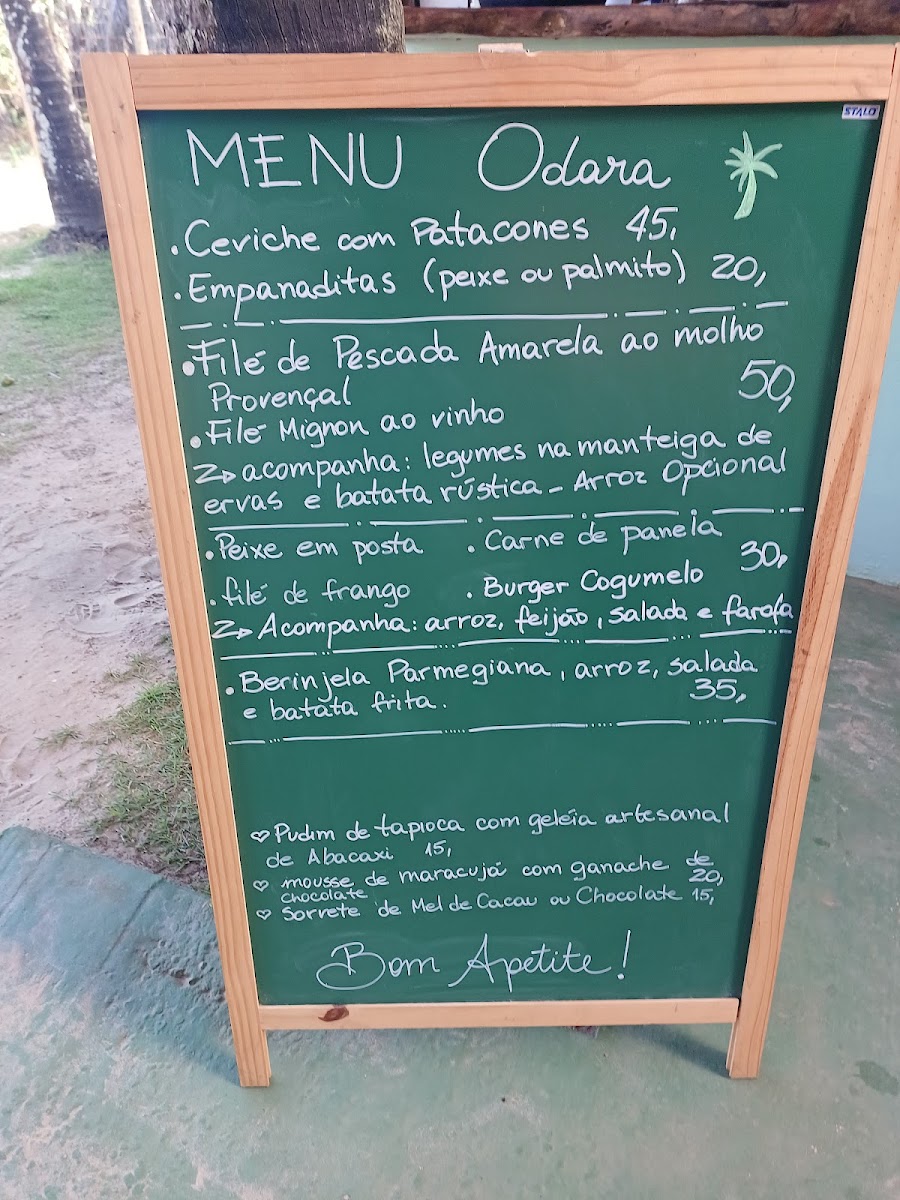 STALO
MENU Odara
. Ceviche com Patacones 45,
. Empanaditas (peixe ou palmito) 20,
. Filé de Pescada Amarela ao molho
Provençal 50,
. Filé Mignon ao vinho
acompanha: legumes na manteiga de
ervas e batata rústica - Arroz Opcional
. Peixe em posta . Carne de panela
30,
. filé de frango . Burger Cogumelo
Acompanha: arroz, feijão, salada e farofa
. Berinjela Parmegiana, arroz, salada
e batata frita. 35,
♡ Pudim de tapioca com geléia artesanal
de Abacaxi 15,
♡ mousse de maracujá com ganache de
chocolate 20,
♡ Sorvete de Mel de Cacau ou Chocolate 15,
Bom Apetite!